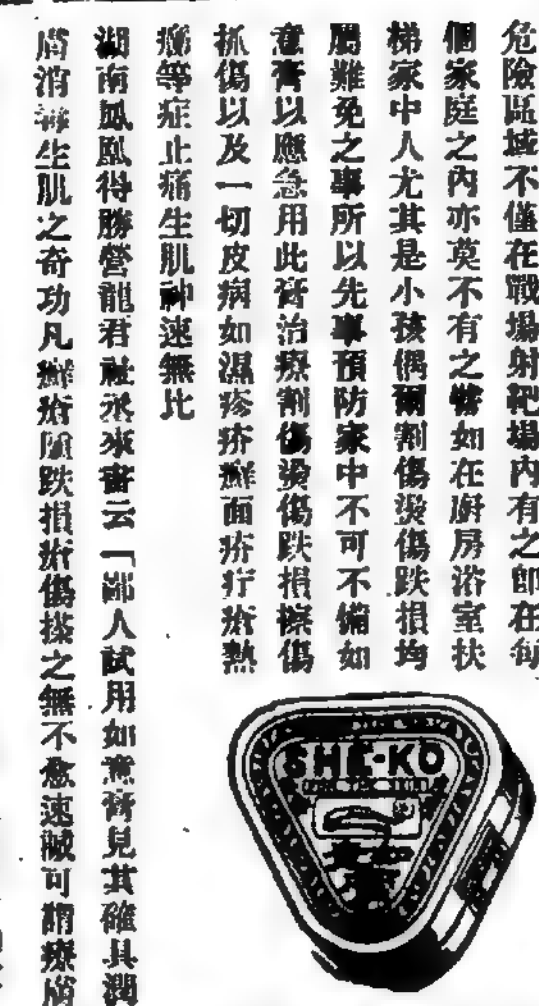 危險區域不僅在戰場射靶場內有之卽在每
個家庭之內亦莫不有之譬如在廚房浴室扶
梯家中人尤其是小孩偶爾割傷燙傷跌損均
屬難免之事所以先事預防家中不可不備如
意膏以應急用此膏治療割傷燙傷跌損擦傷
抓傷以及一切皮病如濕疹疥癬面疥疔瘡熱
瘡等症止痛生肌神速無比
湖南鳳凰得勝營龍君 來書云「鄙人試用如意膏見其確具潤
膚消毒生肌之奇功凡癬瘡 跌損 傷搽之無不愈速 可謂療
SHE-KO